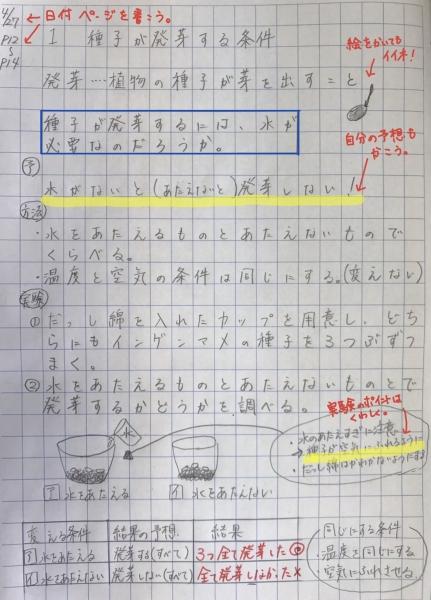 4/27
P12
S
P14
← 日付 ページを書こう。
1 種子が発芽する条件
絵をかいても
イイネ!
発芽…植物の種子が芽を出すこと
種子が発芽するには、水が
必要なのだろうか。
自分の予想も
かこう。
予
水がないと(あたえないと)発芽しない!
方法
・水をあたえるものとあたえないもので
くらべる。
・温度と空気の条件は同じにする。(変えない)
実験
① だっし綿を入れたカップを用意し、どち
らにもインゲンマメの種子を3つぶずつ
まく。
② 水をあたえるものとあたえないものとで
発芽するかどうかを調べる。
実験のポイントは
くわしく。
水
・水のあたえすぎに注意
→種子が空気にふれるように
・だっし綿はかわかないようにする
ア 水をあたえる
イ 水をあたえない
変える条件 結果の予想 結果
ア 水をあたえる 発芽する(すべて) 3つ全て発芽した◎
イ 水をあたえない 発芽しない(すべて) 全て発芽しなかった×
同じにする条件
・温度を同じにする
・空気にふれさせる。